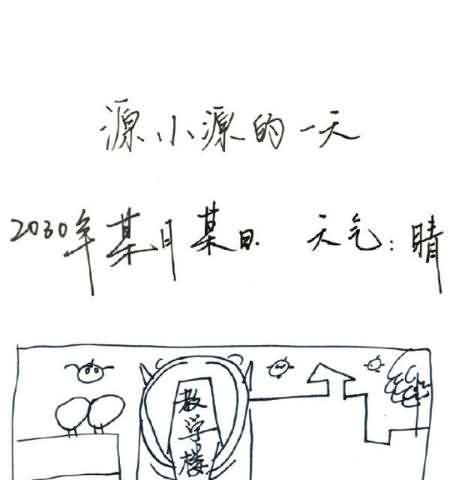 源小源的一天
2030年某月某日 天气:晴
教学楼